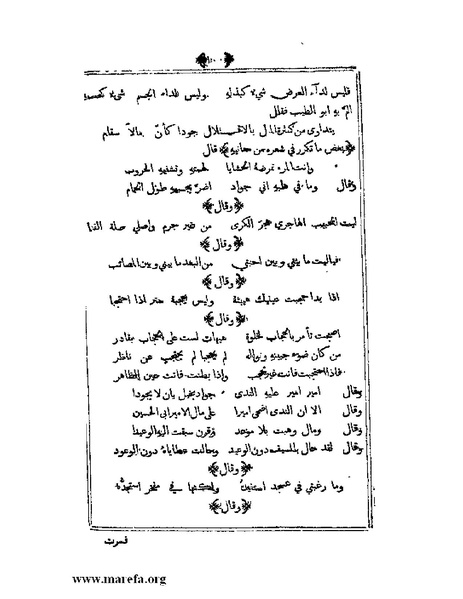 فليس لداء العرض شيء كبذله وليس لداء الجسم شيء كحسمه
الم به ابو الطيب فقال
يتداوى من كثرة المال بالاقلال جودا كأن مالا سقام
بعض ما تكرر في شعره من معانيه قال
وانت المرء تمرضه الحشايا لهمته وتشفيه الحروب
وقال وما في طبه اني جواد اضر بجسمه طول الجمام
وقال
ليت الحبيب الهاجري هجر الكرى من غير جرم واصلي صلة الضنا
وقال
فياليت ما بيني وبين احبتي من البعد ما بيني وبين المصائب
وقال
اذا بدا حجبت عينيك هيبته وليس يحجبه ستر اذا احتجبا
وقال
اصبحت تأمر بالحجاب لخلوة هيهات لست على الحجاب بقادر
من كان ضوء جبينه ونواله لم يحجبا لم يحتجب عن ناظر
فاذا احتجبت فانت غير محجب واذا بطنت فانت عين الظاهر
وقال امير امير عليه الندى جواد بخيل بان لا يجودا
وقال الا ان الندى اضحى اميرا على مال الامير ابي الحسين
وقال ومال وهبت بلا موعد وقرن سبقت اليه الوعيدا
وقال لقد حال بالسيف دون الوعيد وحالت عطاياه دون الوعود
وقال
وما رغبتي في عسجد استفيده ولكنها في مفخر استجده
وقال
فسرت
www.marefa.org